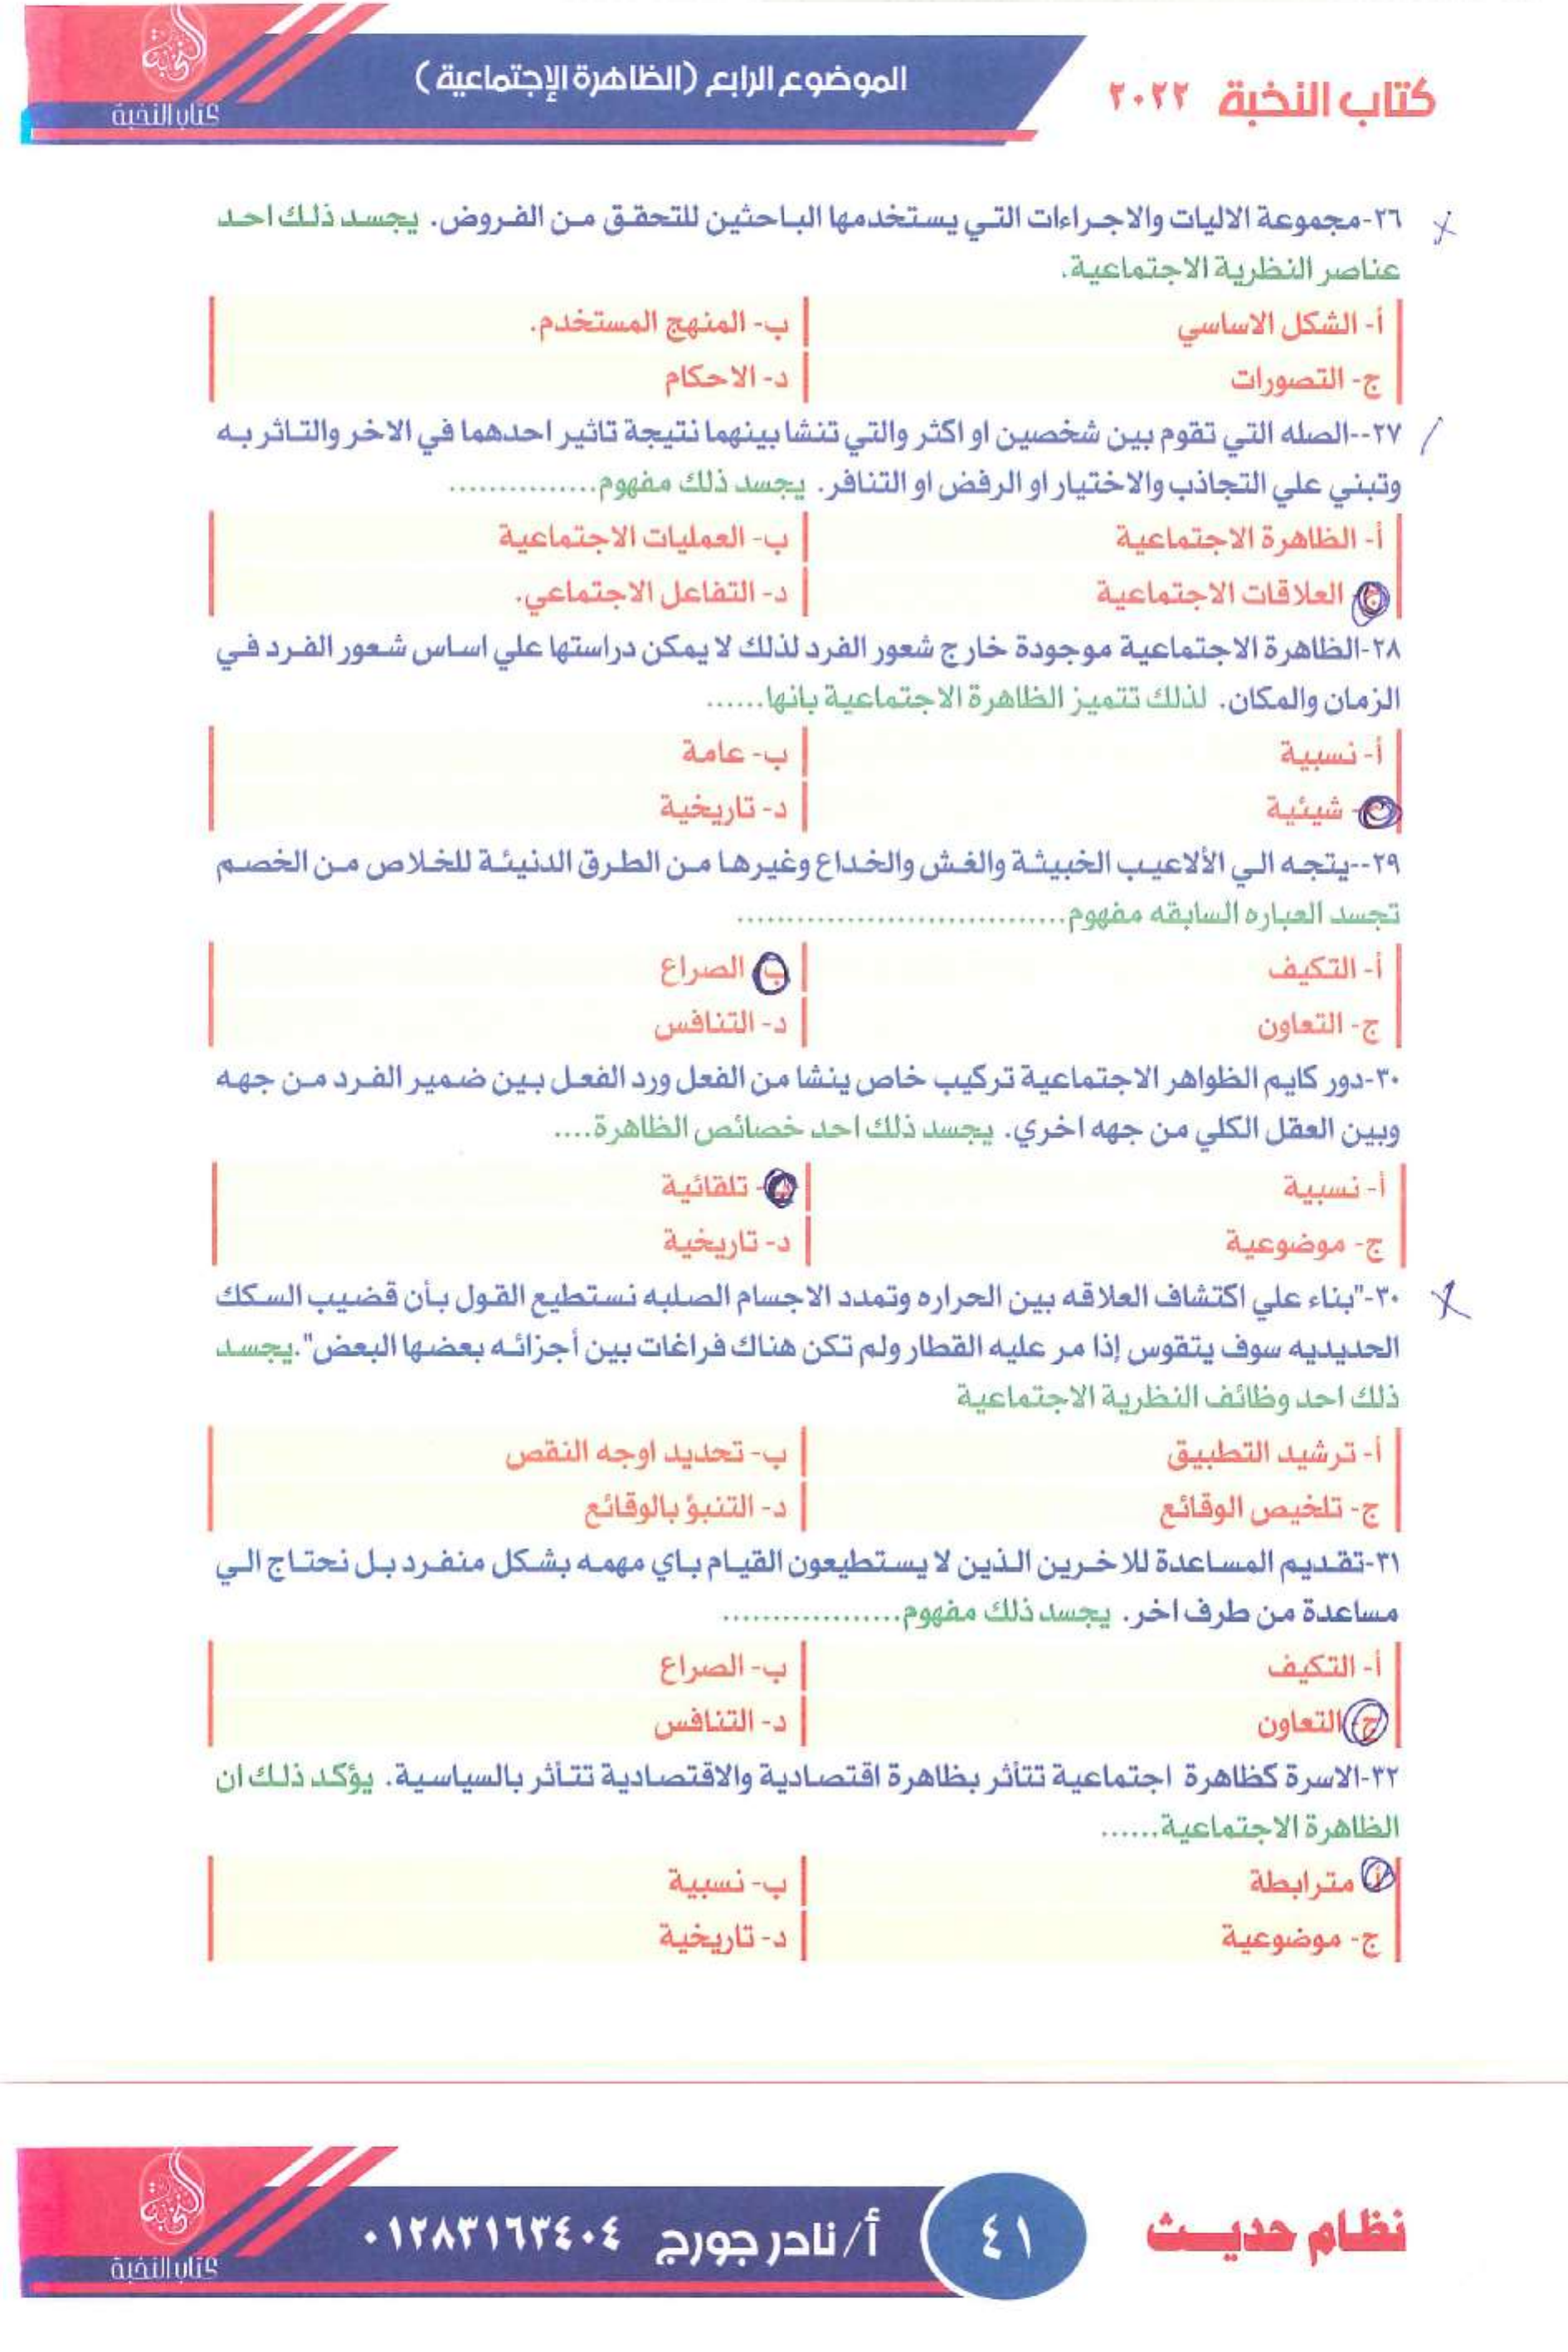 كتاب النخبة ٢٠٢٢
الموضوع الرابع (الظاهرة الإجتماعية)
كتاب النخبة
٢٦-مجموعة الاليات والاجراءات التي يستخدمها الباحثين للتحقق من الفروض. يجسد ذلك احد
عناصر النظرية الاجتماعية.
أ- الشكل الاساسي
ب- المنهج المستخدم.
ج- التصورات
د- الاحكام
٢٧--الصله التي تقوم بين شخصين او اكثر والتي تنشا بينهما نتيجة تاثير احدهما في الاخر والتاثر به
وتبني علي التجاذب والاختيار او الرفض او التنافر. يجسد ذلك مفهوم...............
أ- الظاهرة الاجتماعية
ب- العمليات الاجتماعية
ج- العلاقات الاجتماعية
د- التفاعل الاجتماعي.
٢٨-الظاهرة الاجتماعية موجودة خارج شعور الفرد لذلك لا يمكن دراستها علي اساس شعور الفرد في
الزمان والمكان. لذلك تتميز الظاهرة الاجتماعية بانها......
أ- نسبية
ب- عامة
ج- شيئية
د- تاريخية
٢٩--يتجه الي الألاعيب الخبيثة والغش والخداع وغيرها من الطرق الدنيئة للخلاص من الخصم
تجسد العباره السابقه مفهوم.................................
أ- التكيف
ب- الصراع
ج- التعاون
د- التنافس
٣٠-دور كايم الظواهر الاجتماعية تركيب خاص ينشا من الفعل ورد الفعل بين ضمير الفرد من جهه
وبين العقل الكلي من جهه اخري. يجسد ذلك احد خصائص الظاهرة....
أ- نسبية
ب- تلقائية
ج- موضوعية
د- تاريخية
٣٠-"بناء علي اكتشاف العلاقه بين الحراره وتمدد الاجسام الصلبه نستطيع القول بأن قضيب السكك
الحديديه سوف يتقوس إذا مر عليه القطار ولم تكن هناك فراغات بين أجزائه بعضها البعض".يجسد
ذلك احد وظائف النظرية الاجتماعية
أ- ترشيد التطبيق
ب- تحديد اوجه النقص
ج- تلخيص الوقائع
د- التنبؤ بالوقائع
٣١-تقديم المساعدة للاخرين الذين لا يستطيعون القيام باي مهمه بشكل منفرد بل نحتاج الي
مساعدة من طرف اخر. يجسد ذلك مفهوم..................
أ- التكيف
ب- الصراع
ج- التعاون
د- التنافس
٣٢-الاسرة كظاهرة اجتماعية تتأثر بظاهرة اقتصادية والاقتصادية تتأثر بالسياسية. يؤكد ذلك ان
الظاهرة الاجتماعية......
أ- مترابطة
ب- نسبية
ج- موضوعية
د- تاريخية
نظام حديث
٤١
أ/ نادر جورج ٠١٢٨٣١٦٣٤٠٤
كتاب النخبة